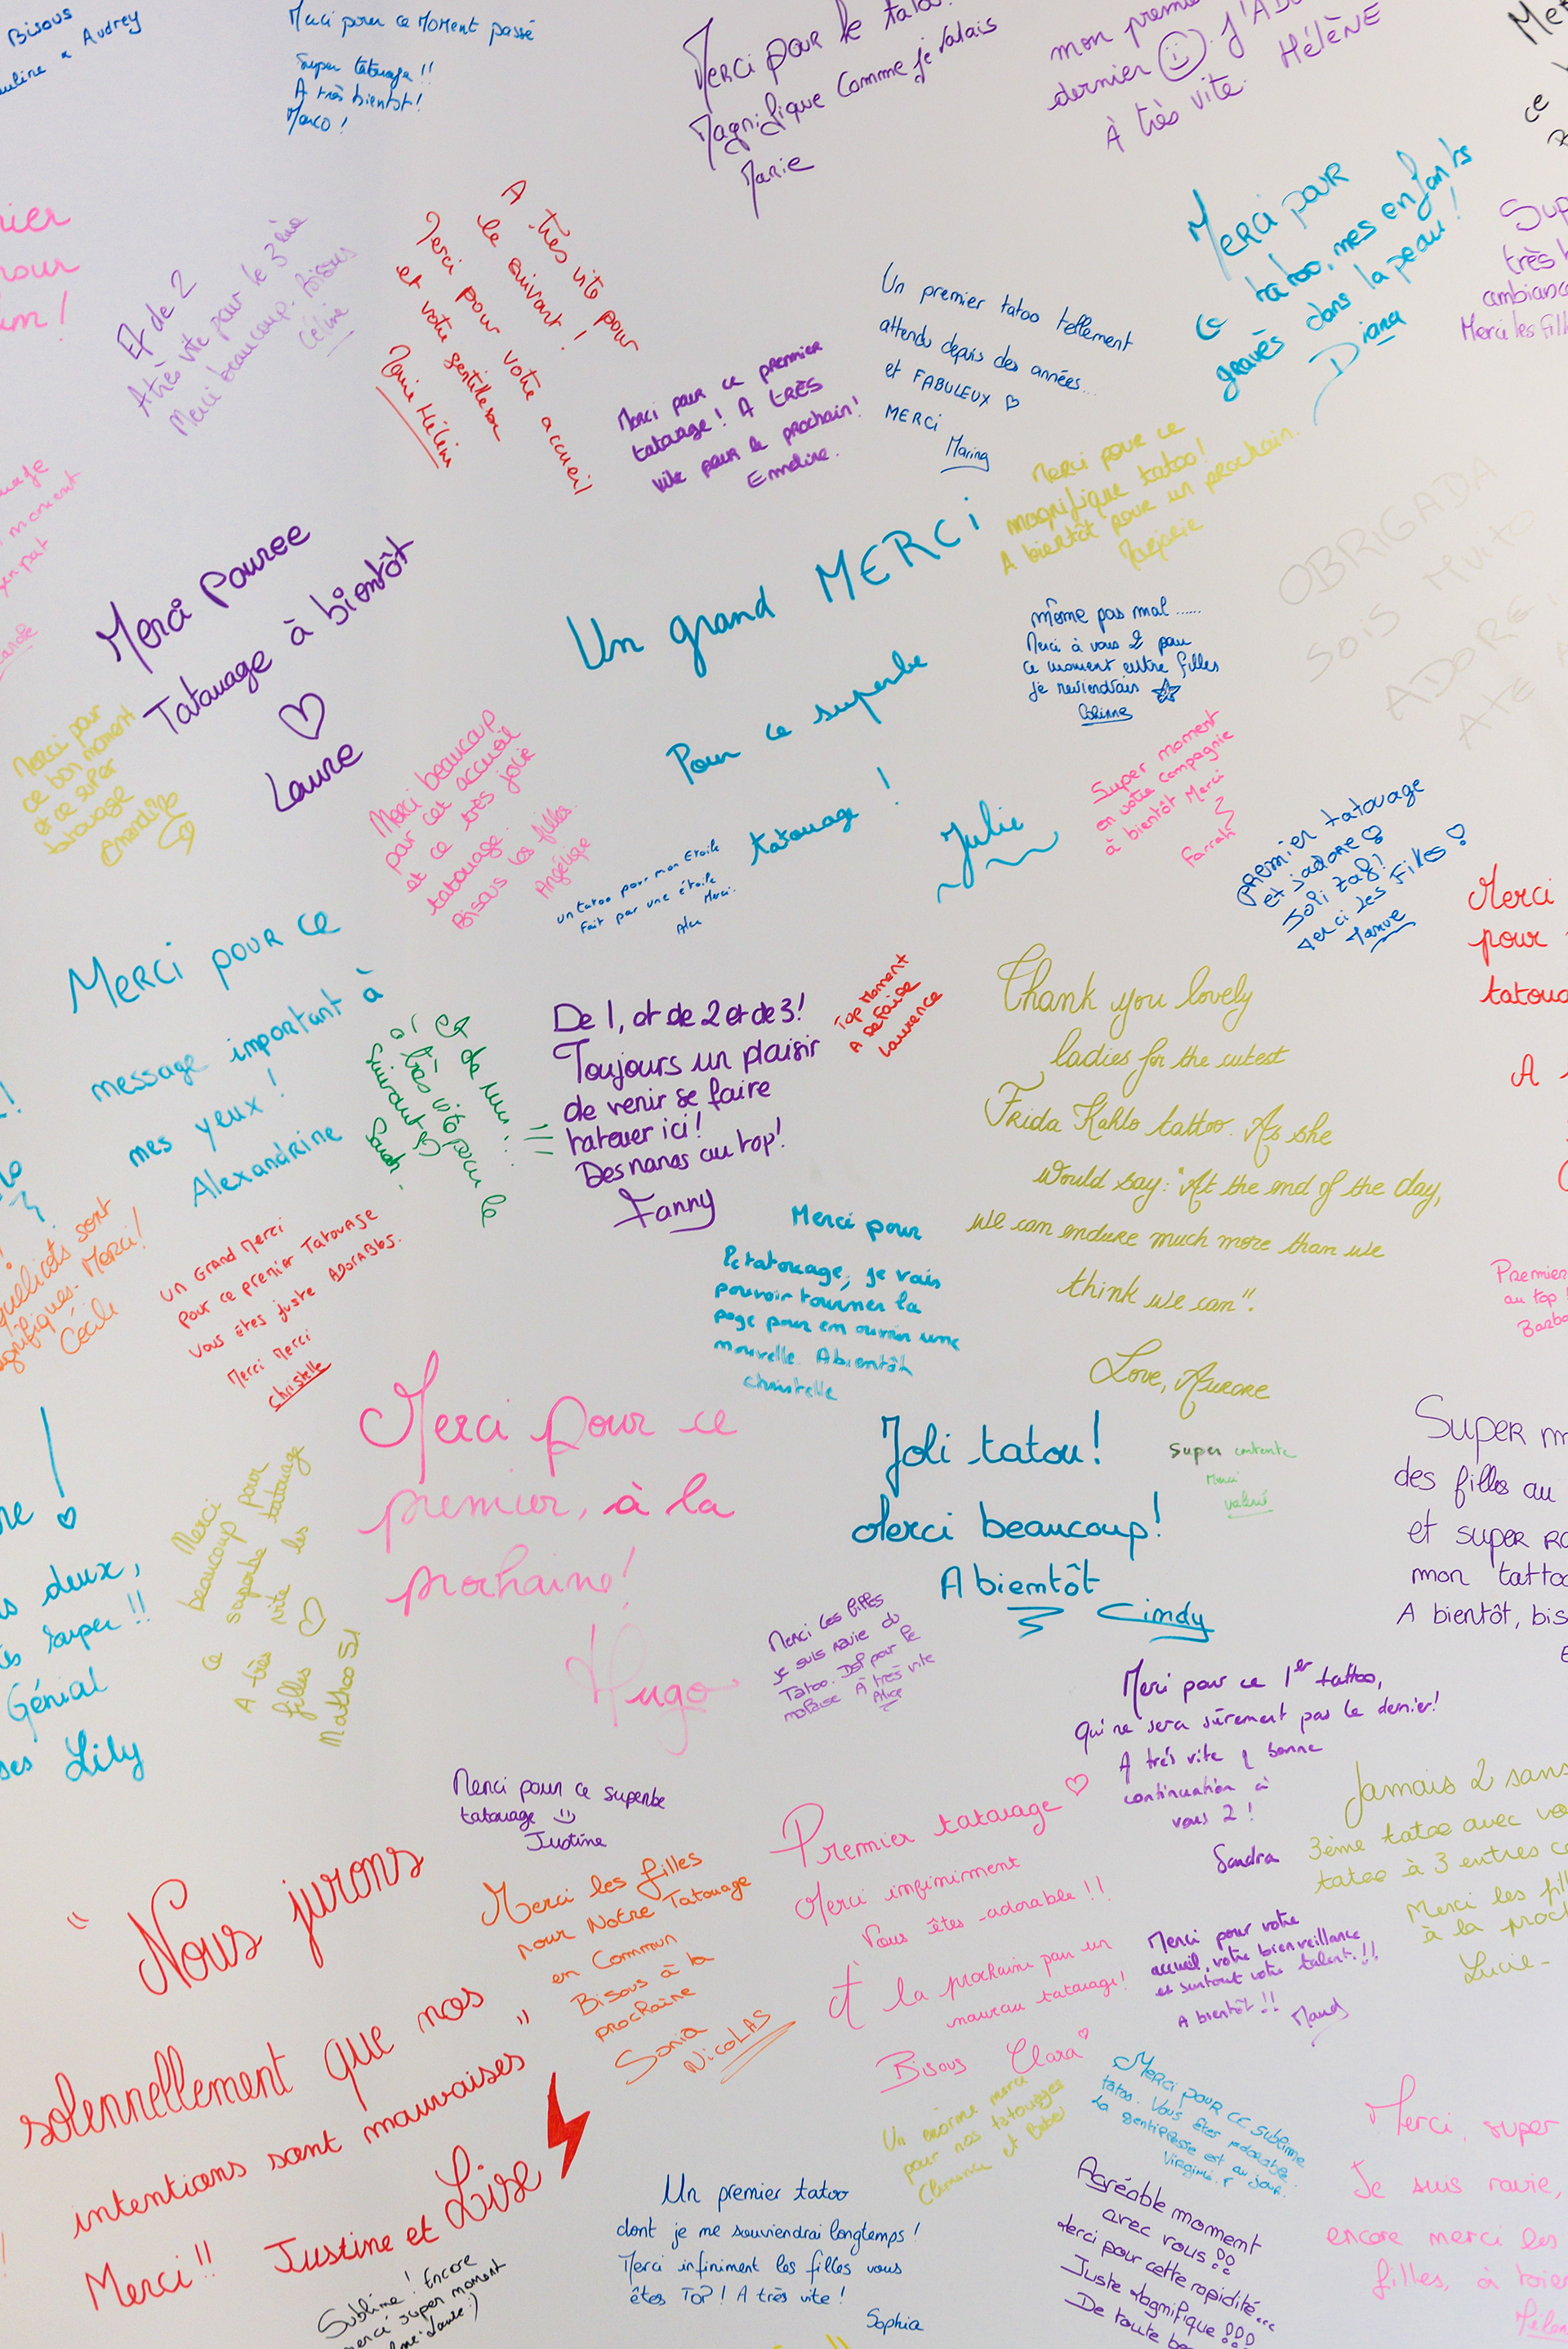 Bisous
Audrey
Merci pour ce Moment passé
Super tatouage !!
A très bientôt !
Marco !
Merci pour le
Magnifique comme je
Marie
mon
dernier
HÉLÈNE
À très vite.
Merci pour
ce tatoo, mes enfants
gravés dans la peau !
Diana
très
Merci les
Et de 2
A très vite pour le 3ème
Merci beaucoup. Bisous
Céline
A très vite pour
le suivant !
Merci pour votre accueil
et votre gentillesse
Marie Hélène
Merci pour ce premier
tatouage ! A TRÈS
vite pour le prochain !
Emeline.
Un premier tatoo tellement
attendu depuis des années...
et FABULEUX ♡
MERCi
Marina
Merci pour ce
magnifique tatoo !
A bientôt pour un prochain.
Marjorie
OBRIGADA
SOIS MUITO
ADORE
ATE
Merci Pour ce
Tatouage à bientôt
♡
Laure
Un grand MERCi
Pour ce superbe
tatouage !
Julie
même pas mal ......
Merci à vous 2 pour
ce moment entre filles
je reviendrais ☆
Corinne
Super moment
en votre compagnie
à bientôt Merci
Farrah
Merci pour
ce bon moment
et ce super
tatouage
Amandine
Merci beaucoup
par cet accueil
et ce très jolie
tatouage.
Bisous les filles.
Angélique
un tatoo pour mon Etoile
Fait par une étoile
Merci.
Premier tatouage
et j'adore
Merci les Filles ♡
Merci
pour
A
Merci pour ce
message important à
mes yeux !
Alexandrine
Et de un ...
à très vite pour le
suivant
Sarah.
De 1, et de 2 et de 3 !
Toujours un plaisir
de venir se faire
tatouer ici !
Des nanas au top !
Fanny
Top Moment
A Refaire
Laurence
Thank you lovely
ladies for the cutest
Frida Kahlo tattoo. As she
would say : "At the end of the day,
we can endure much more than we
think we can".
Love, Aurore
sont
Merci !
Cécile
un Grand Merci
Pour ce premier Tatouage
vous êtes juste Adorables.
Merci Merci
Christelle
Merci pour
le tatouage, je vais
pouvoir tourner la
page pour en ouvrir une
nouvelle. A bientôt
Christelle
Premier
au top !
Merci pour ce
premier, à la
prochaine !
Hugo
Joli tatou !
Merci beaucoup !
A bientôt
Cindy
Super contente
Merci
Valérie
Super
des filles au
et super
mon
A bientôt,
deux,
super !!
Génial
Lily
Merci
beaucoup pour
ce superbe tatouage
A très vite les
filles ♡
Merci les filles
je suis ravie du
Tatoo. Dsl pour le
malaise À très vite
Alice
Merci pour ce 1er tattoo,
qui ne sera sûrement pas le dernier !
A très vite & bonne
continuation à
vous 2 !
Sandra
Merci pour ce superbe
tatouage
Justine
Premier tatouage ♡
Merci infiniment
Vous êtes adorable !!
À la prochaine pour un
nouveau tatouage !
Bisous Clara
Jamais 2 sans
3ème tatoo avec
tatoo à 3 entres
Merci les
à la
Lucie-
Merci les filles
pour Notre Tatouage
en Commun
Bisous à la
prochaine
Sonia
Nicolas
Merci pour votre
accueil, votre bienveillance,
et surtout votre talent. !!
A bientôt !!
Maud
" Nous jurons
solennellement que nos
intentions sont mauvaises "
Merci !! Justine et Lise
Un énorme merci
pour nos tatouages
Clémence et
Merci pour ce sublime
tatoo. Vous êtes adorable.
La gentillesse est au jour.
Virginie. F
Un premier tatoo
dont je me souviendrai longtemps !
Merci infiniment les filles vous
êtes TOP ! A très vite !
Sophia
Agréable moment
avec vous !!
Merci pour cette rapidité...
Juste Magnifique !!!
De toute
Merci, super
Je suis ravie,
encore merci les
filles, à
Sublime ! Encore
merci super moment